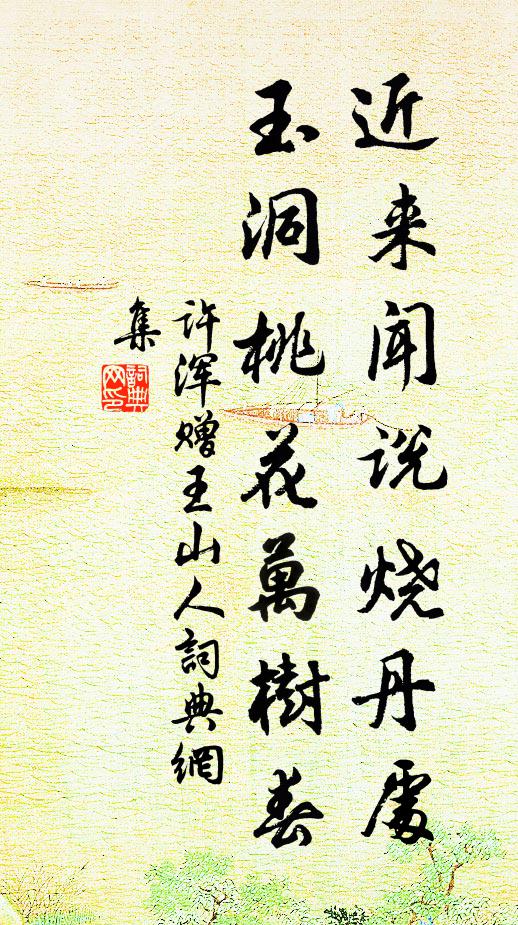 近来闻说烧丹處
玉洞桃花萬樹春
许浑赠王山人詞典網
集
詞典
网印